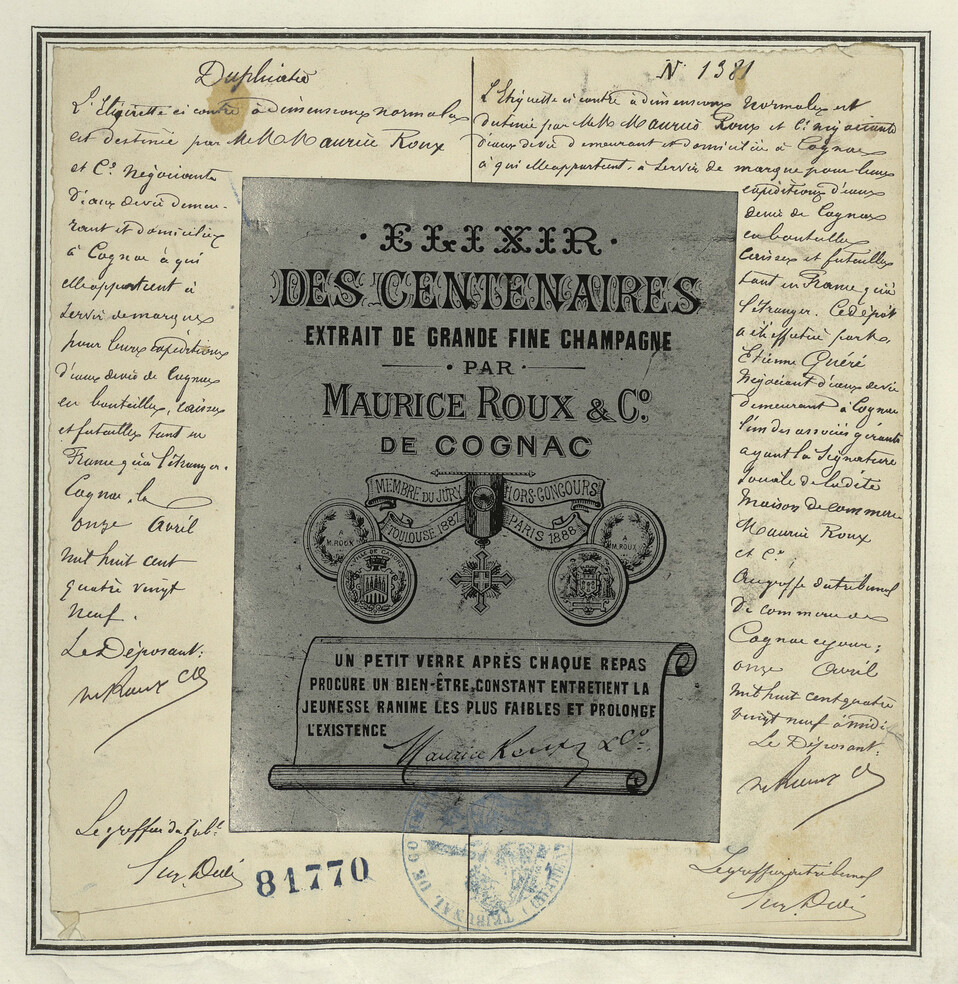 Duplicata
L'Etiquette ci contre à dimensions normales
est destinée par MM Maurice Roux
et Cie Négociants
d'eaux de vie demeu-
rant et domiciliés
à Cognac à qui
elle appartient à
servir de marques
pour leurs expéditions
d'eaux de vie de Cognac
en bouteilles, caisses
et futailles tant en
France qu'à l'étranger.
Cognac, le
onze Avril
mil huit cent
quatre vingt
neuf.
Le Déposant:
M Roux & Cie
Le greffier du Trib.l
N° 1381
L'Etiquette ci contre à dimensions normales est
destinée par MM Maurice Roux et Cie négociants
d'eaux de vie demeurant et domiciliés à Cognac
à qui elle appartient, à servir de marque pour leurs
expéditions d'eaux
de vie de Cognac
en bouteilles
caisses et futailles
tant en France qu'à
l'étranger. Ce dépôt
a été effectué par M.
Etienne Quéré
Négociant d'eaux de vie
demeurant à Cognac
l'un des associés gérants
ayant la signature
sociale de ladite
maison de commerce
Maurice Roux
et Cie
Au greffe du tribunal
de commerce de
Cognac ce jour;
onze Avril
mil huit cent quatre
vingt neuf à midi.
Le Déposant:
M Roux & Cie
Le greffier du tribunal
·ELIXIR·
DES CENTENAIRES
EXTRAIT DE GRANDE FINE CHAMPAGNE
· PAR ·
MAURICE ROUX & Co.
DE COGNAC
MEMBRE DU JURY HORS-CONCOURS
TOULOUSE 1887 PARIS 1888
A M.ROUX
A M.ROUX
UN PETIT VERRE APRÈS CHAQUE REPAS
PROCURE UN BIEN-ÊTRE CONSTANT ENTRETIENT LA
JEUNESSE RANIME LES PLUS FAIBLES ET PROLONGE
L'EXISTENCE
Maurice Roux & Co.
81770
TRIBUNAL DE